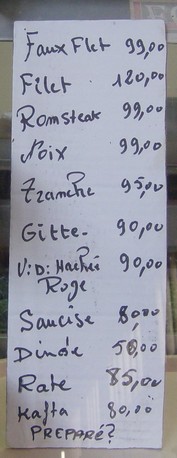 Faux Flet 99,00
Filet 120,00
Romsteak 99,00
Noix 99,00
Tranche 95,00
Gitte- 90,00
V:D: Hachée 90,00
Roge
Saucise 8,000
Dinde 50,00
Rate 85,00
Kafta 80,00
PREPARÉ?